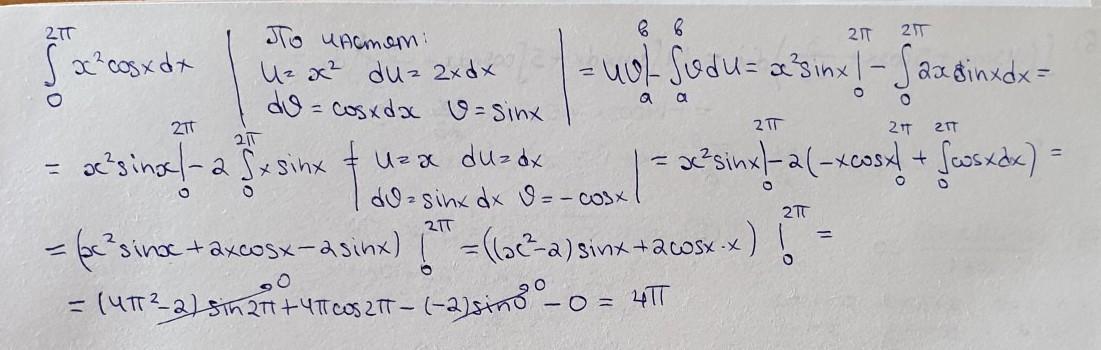 ∫₀^{2π} x² cosx dx | По частям: u = x² du = 2x dx dϑ = cosx dx ϑ = sinx | = uϑ|ₐᵇ - ∫ₐᵇ ϑdu = x² sinx |₀^{2π} - ∫₀^{2π} 2x sinx dx =
= x² sinx|₀^{2π} - 2 ∫₀^{2π} x sinx = | u = x du = dx dϑ = sinx dx ϑ = -cosx | = x² sinx|₀^{2π} - 2(-x cosx|₀^{2π} + ∫₀^{2π} cosx dx) =
= (x² sinx + 2x cosx - 2 sinx) |₀^{2π} = ((x² - 2) sinx + 2 cosx · x) |₀^{2π} =
= (4π² - 2) sin2π → 0 + 4π cos2π - (-2) sin0 → 0 - 0 = 4π